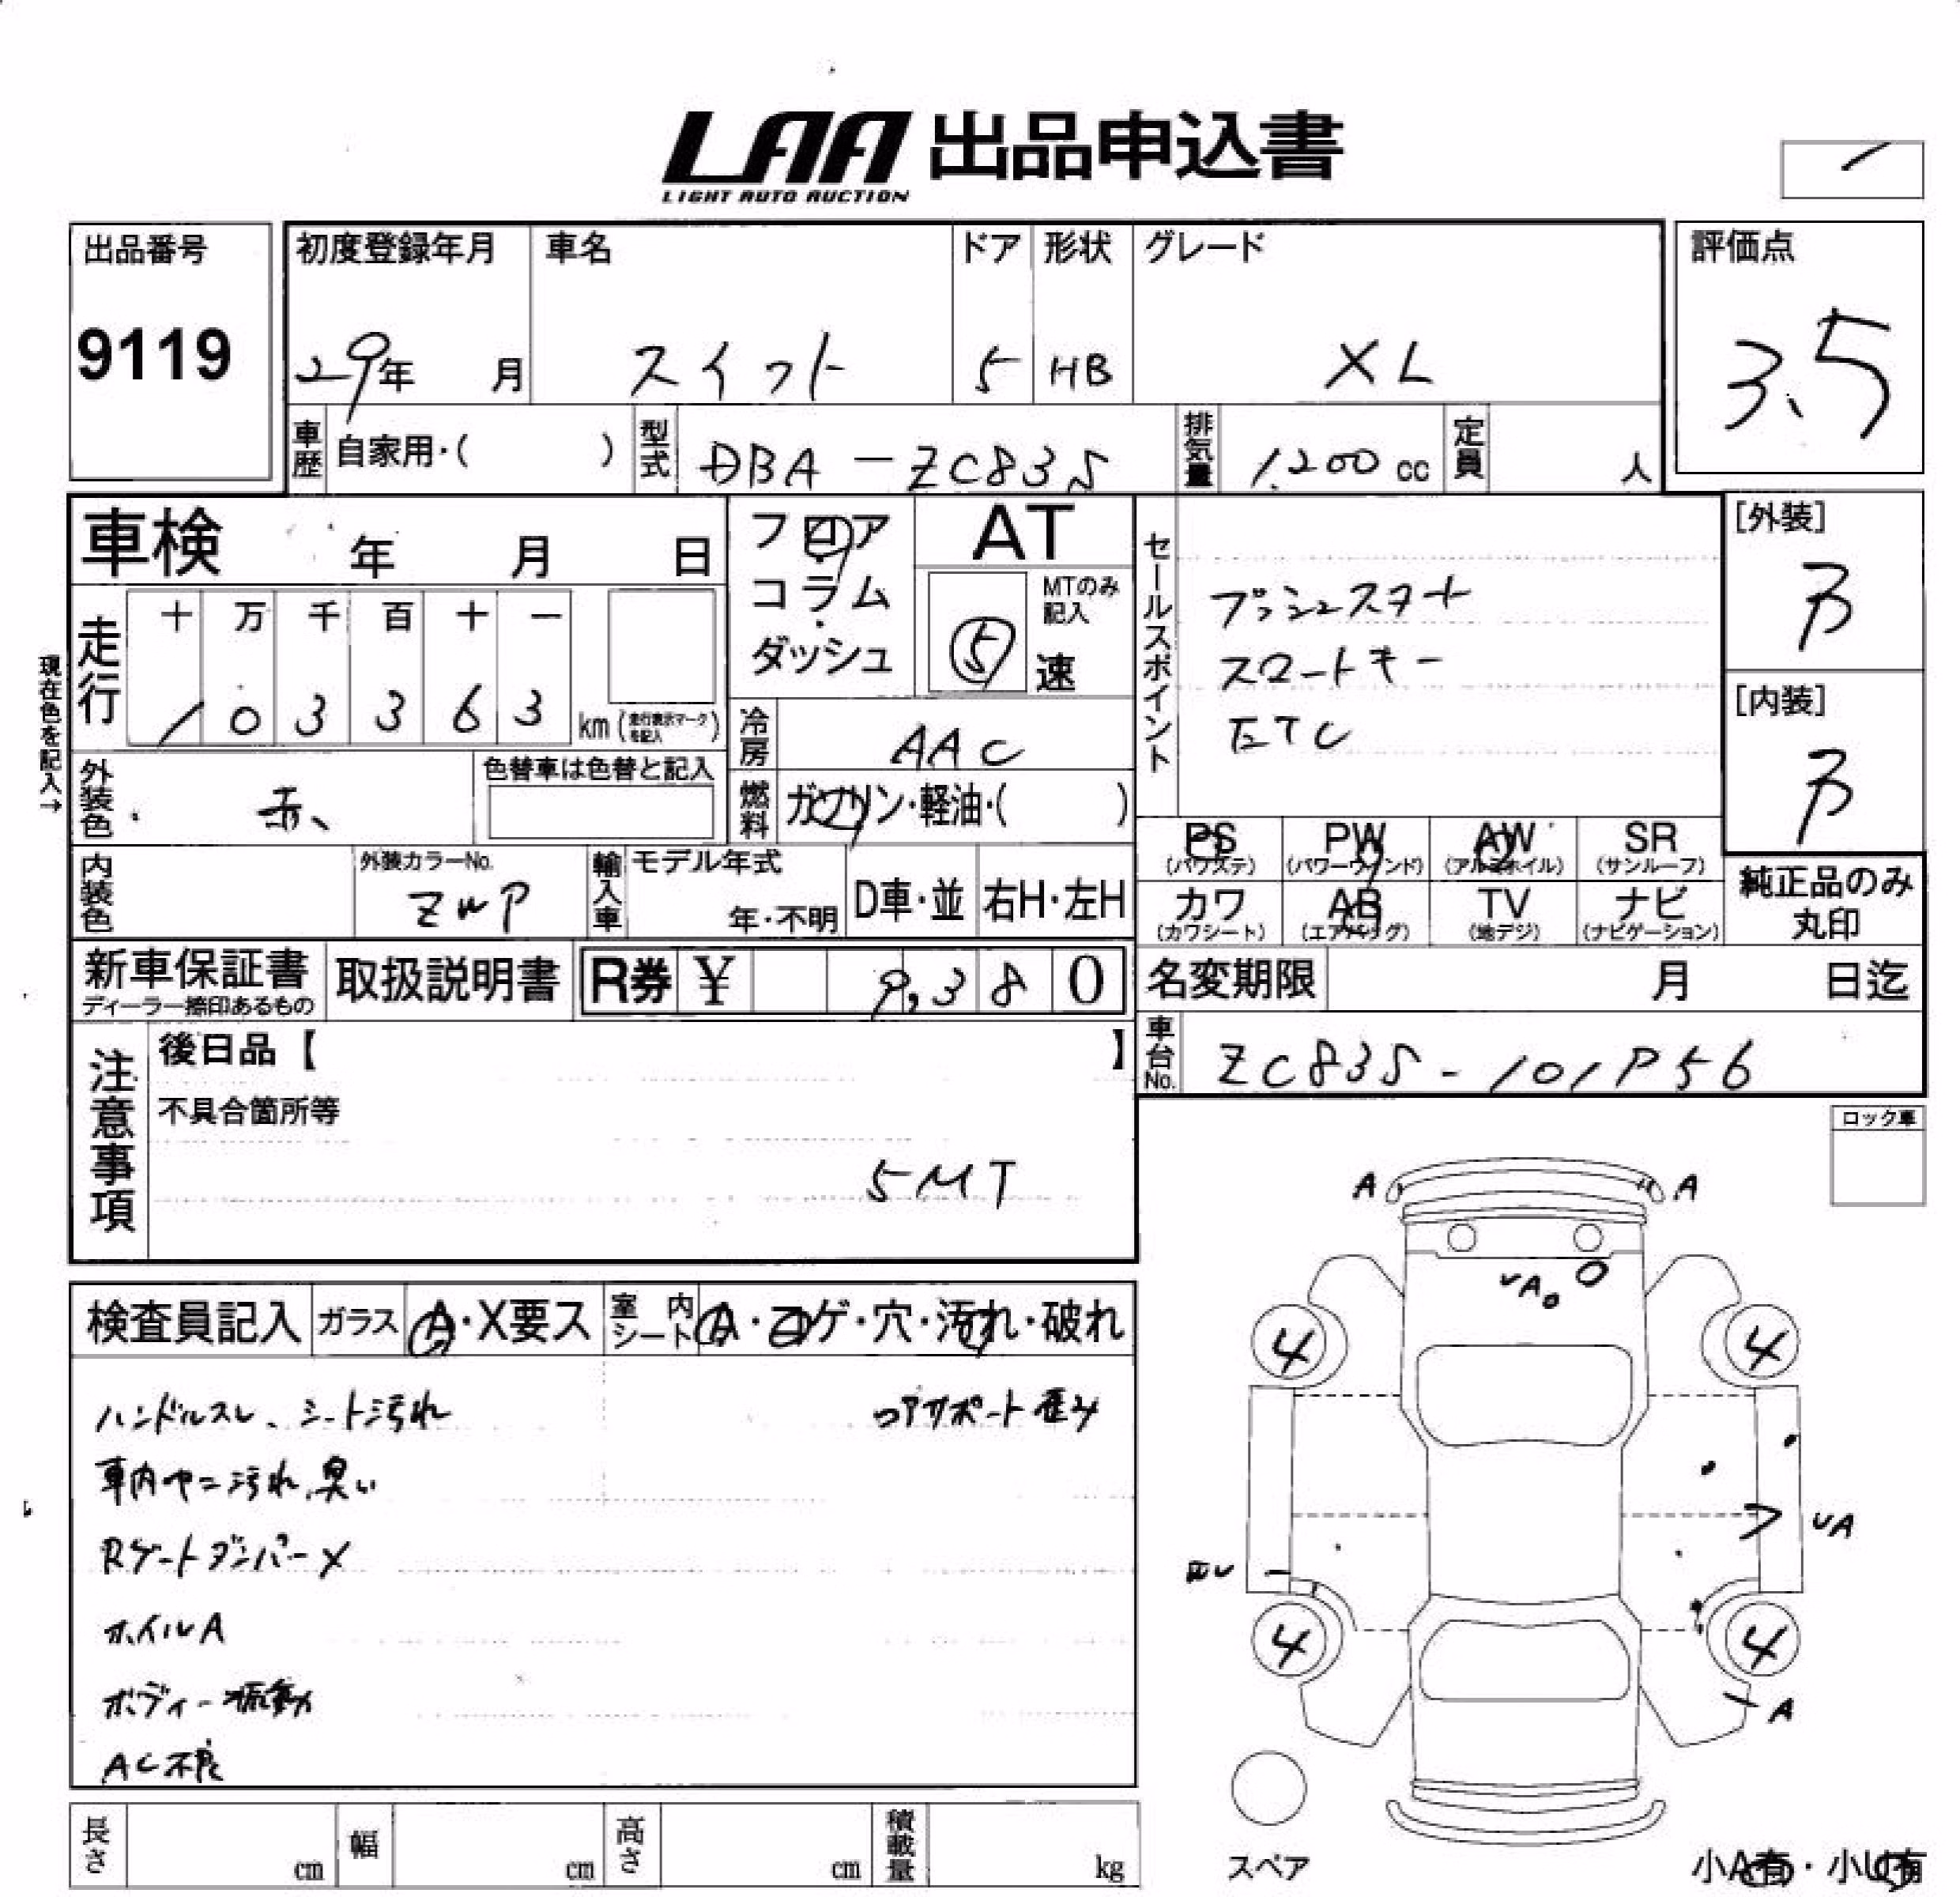 LAA 出品申込書
LIGHT AUTO AUCTION
出品番号
9119
初度登録年月
29年 月
車名
スイフト
ドア
5
形状
HB
グレード
XL
評価点
3.5
車歴 自家用・( )
型式 DBA-ZC83S
排気量 1,200 cc
定員 人
車検 年 月 日
フロア・コラム・ダッシュ
AT
MTのみ記入
5 速
セールスポイント
プッシュスタート
スマートキー
ETC
[外装]
B
[内装]
B
現在色を記入→
走行
十 万 千 百 十 一
1 0 3 3 6 3 km (走行表示マークを記入)
冷房 AAC
外装色 赤
色替車は色替と記入
燃料 ガソリン・軽油・( )
PS (パワステ)
PW (パワーウィンド)
AW (アルミホイル)
SR (サンルーフ)
内装色
外装カラーNo.
ZWP
輸入車
モデル年式
年・不明
D車・並
右H・左H
カワ (カワシート)
AB (エアバッグ)
TV (地デジ)
ナビ (ナビゲーション)
純正品のみ丸印
新車保証書
ディーラー捺印あるもの
取扱説明書
R券 ¥ 9,380
名変期限 月 日迄
車台No. ZC83S-101P56
注意事項
後日品【 】
不具合箇所等
5MT
ロック車
検査員記入
ガラス A・X要ス
室内シート A・コゲ・穴・汚れ・破れ
ハンドルスレ、シート汚れ
コアサポート歪み
車内ヤニ汚れ、臭い
Rゲートダンパー✕
ホイルA
ボディー振動
AC不良
A A
UA
4 4
UA
4 4
A
スペア
小A有・小U有
長さ cm
幅 cm
高さ cm
積載量 kg